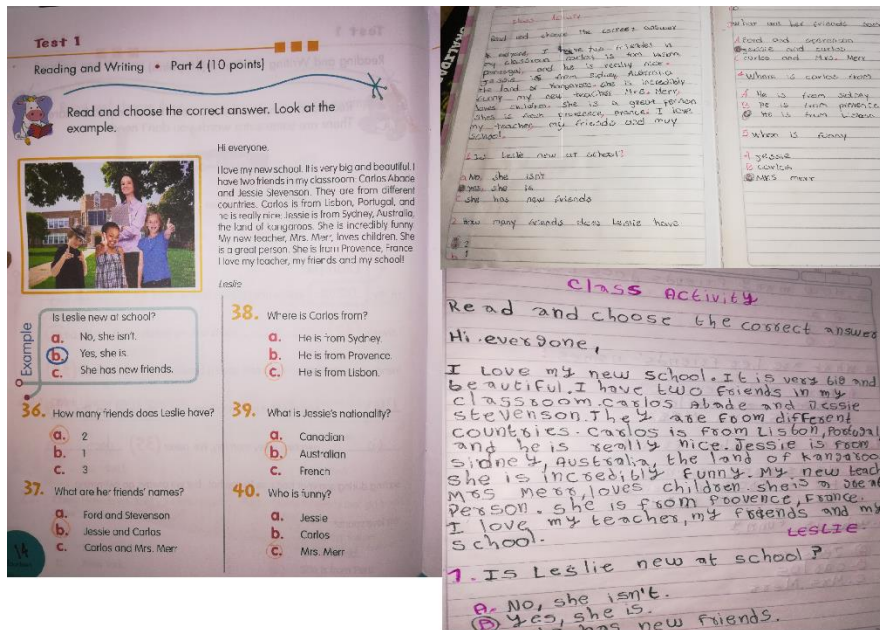 Test 1
Reading and Writing • Part 4 (10 points)
Read and choose the correct answer. Look at the
example.
Hi everyone.
I love my new school. It is very big and beautiful. I
have two friends in my classroom. Carlos Abade
and Jessie Stevenson. They are from different
countries. Carlos is from Lisbon, Portugal, and
he is really nice. Jessie is from Sydney, Australia,
the land of kangaroos. She is incredibly funny.
My new teacher, Mrs. Merr, loves children. She
is a great person. She is from Provence, France.
I love my teacher, my friends and my school!
Leslie
Example
Is Leslie new at school?
a. No, she isn't.
b. Yes, she is.
c. She has new friends.
36. How many friends does Leslie have?
a. 2
b. 1
c. 3
37. What are her friends' names?
a. Ford and Stevenson
b. Jessie and Carlos
c. Carlos and Mrs. Merr
38. Where is Carlos from?
a. He is from Sydney.
b. He is from Provence.
c. He is from Lisbon.
39. What is Jessie's nationality?
a. Canadian
b. Australian
c. French
40. Who is funny?
a. Jessie
b. Carlos
c. Mrs. Merr
14
Read and choose the correct answer
my classroom carlos is from lisbon
and he is really nice.
funny my new teacher Mrs. Merr,
loves children. she is a great person
my teacher my friends and muy
school.
leslie new at school?
No, she isn't
yes, she is
she has new friends
2 How many friends does leslie have
2
1
What are her friends
carlos and Mrs. Merr
Where is carlos from
A He is from sidney
B He is from provence
He is from Lisbon
funny
A jessie
B carlos
Mrs merr
Class Activity
Read and choose the correct answer
Hi.everyone,
I Love my new school. It is very big and
beautiful. I have two friends in my
classroom. carlos Abade and Jessie
stevenson. They are from different
countries. Carlos is from Lisbon, Portugal
and he is really nice. Jessie is from
sidney, Australia, the land of kangaroo
she is incredibly funny. My new teach
Mrs Merr, loves children. she is a great
Person. she is from Provence, France.
I love my teacher, my friends and my
school.
LESLIE
1. Is Leslie new at school?
A. No, she isn't.
B yes, she is.
has new friends.